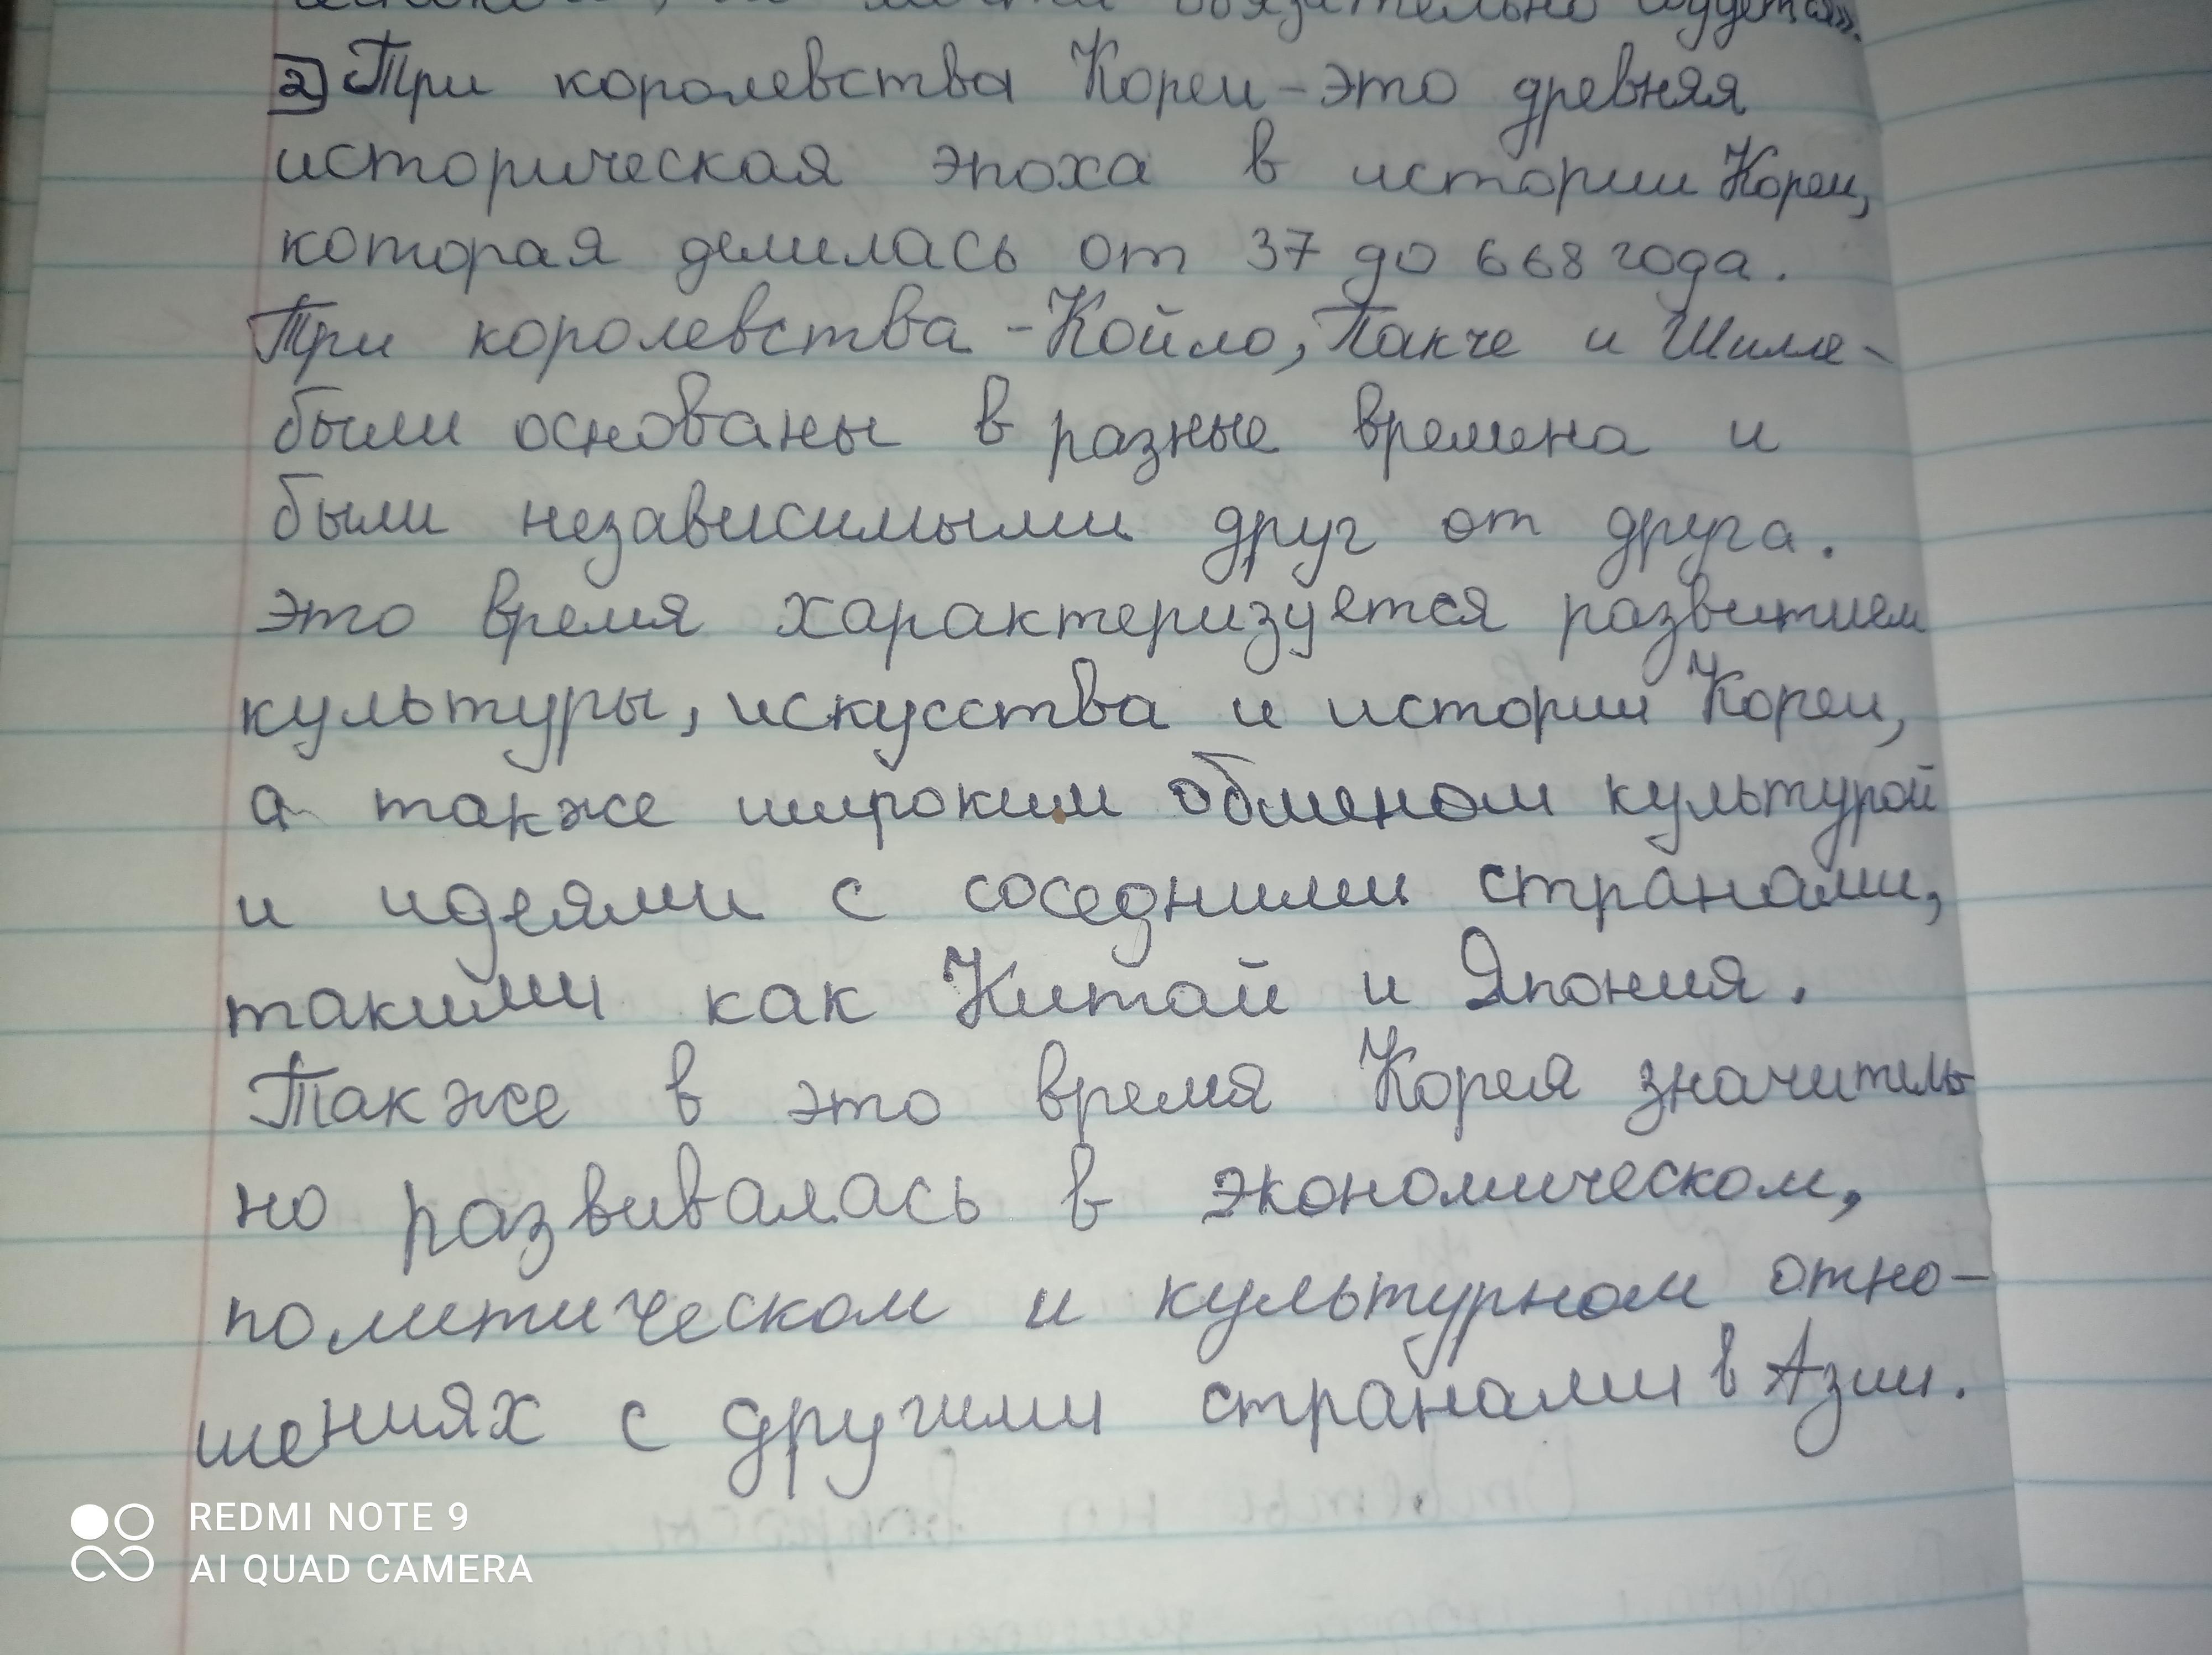 обязательно сбудется».
2) Три королевства Кореи - это древняя
историческая эпоха в истории Кореи,
которая делилась от 37 до 668 года.
Три королевства - Койло, Пакче и Шилле -
были основаны в разные времена и
были независимыми друг от друга.
это время характеризуется развитием
культуры, искусства и истории Кореи,
а также широким обменом культурой
и идеями с соседними странами,
такими как Китай и Япония.
Также в это время Корея значитель
но развивалась в экономическом,
политическом и культурном отно-
шениях с другими странами в Азии.
REDMI NOTE 9
AI QUAD CAMERA